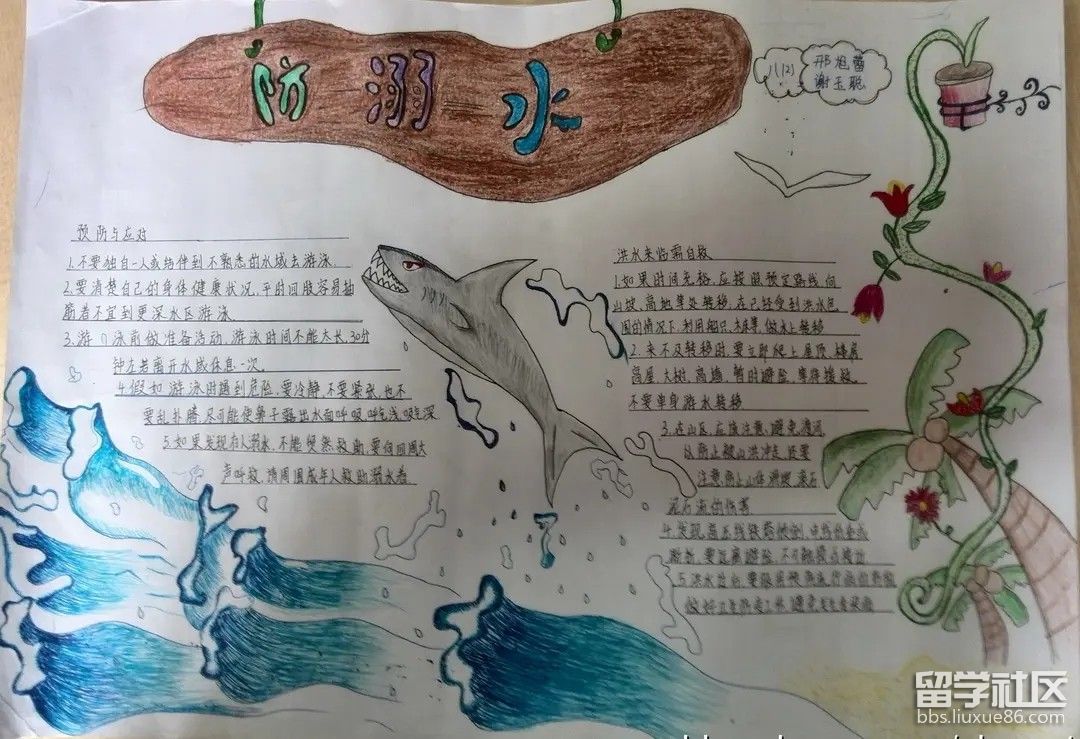 防溺水
八(12) 邢旭蕾
谢玉聪
预防与应对
1.不要独自一人或结伴到不熟悉的水域去游泳.
2.要清楚自己的身体健康状况,平时四肢容易抽
筋者不宜到更深水区游泳
3.游泳前做准备活动,游泳时间不能太长,30分
钟左右离开水域休息一次,
4.假如游泳时遇到危险,要冷静,不要紧张,也不
要乱扑腾,尽可能使鼻子露出水面呼吸,呼气浅,吸气深
5.如果发现有人溺水,不能贸然救助,要向四周大
声呼救,请周围成年人救助溺水者.
洪水来临需自救
1.如果时间充裕,应按照预定路线向
山坡,高地等处转移,在已经受到洪水包
围的情况下,利用船只,木床等,做水上转移
2.来不及转移时,要立即爬上屋顶,楼房
高屋,大树,高墙,暂时避险,等待援救,
不要单身游水转移
3.在山区,应该注意,避免渡河
以防止被山洪冲走,还要
注意防止山体滑坡,滚石
泥石流的伤害
4.发现高压线铁塔倾倒,电线低垂或
断折,要远离避险,不可触摸或接近
5.洪水过后,要服用预防流行病的药物
做好卫生防疫工作,避免发生传染病
留学社区
bbs.liuxue86.com